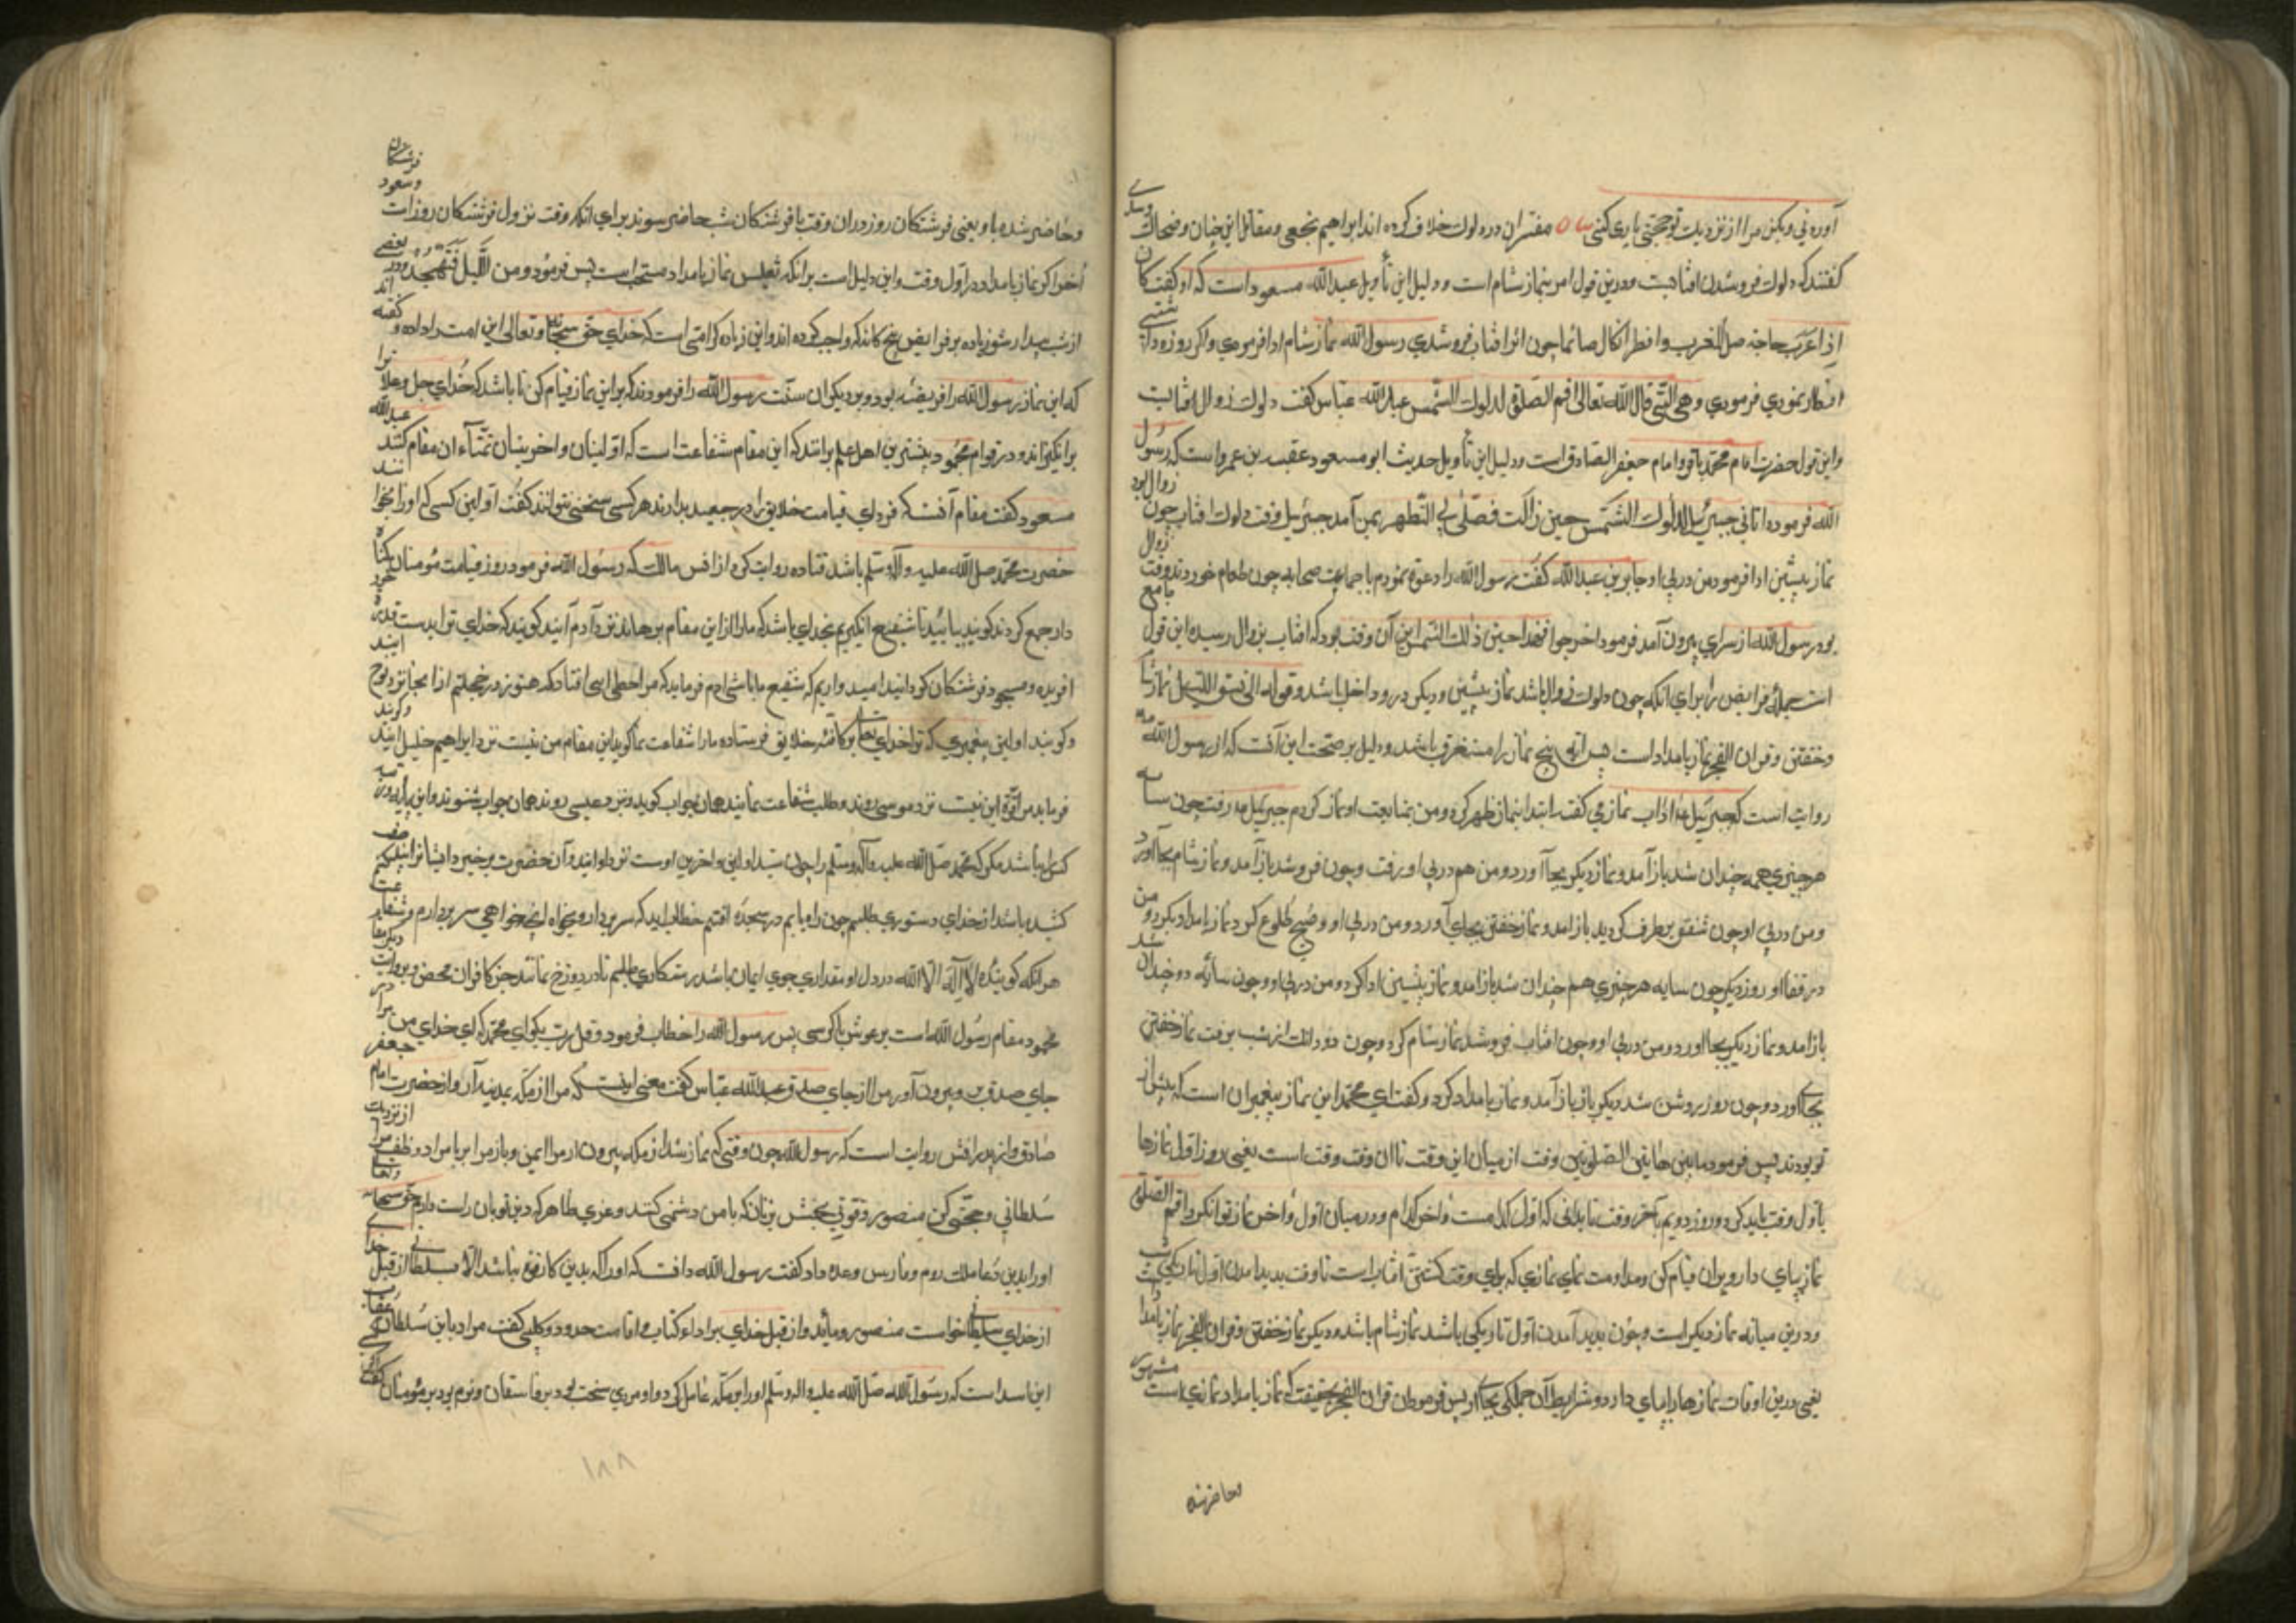 آوردنی و بکن مرا از نزدیک تو حجتی یاری کنی مفسران در دلوک خلاف کرده اند ابراهیم نخعی و مقاتل ابن حیان و ضحاک و سدی
گفتند که دلوک فروشدن افتابست و درین قول امر بنماز شام است و دلیل این تأویل عبدالله مسعود است که او گفت کان
اذا غربت حاجة صلی المغرب وافطر ان کان صائما چون اثر افتاب فروشدی رسول الله نماز شام ادا فرمودی و اکر روزه داشتی
افطار نمودی فرمودی و هی التی قال الله تعالی اقم الصلوة لدلوک الشمس عبدالله عباس گفت دلوک زوال افتابست
و این قول حضرت امام محمد باقر و امام جعفر الصادق است و دلیل این تأویل حدیث ابو مسعود عقبه بن عمرو است که رسول
الله فرموده اتانی جبرئیل لدلوک الشمس حین زالت فصلی بی الظهر بمن آمد جبرئیل وقت دلوک افتاب چون زوال بود
نماز پیشین ادا فرمود من در پی او جابر بن عبدالله گفت رسول الله را دعوة نمودم با جماعت صحابه چون طعام خوردند وقت زوال
بود رسول الله از سرای بیرون آمد فرمود اخرجوا فهذا حین دلک الشمس این آن وقت بود که افتاب بزوال رسیده این قول جامع
است جمله فرایض را برای انکه چون دلوک زوال باشد نماز پیشین و دیکر درو داخل باشد و قوله الی غسق اللیل نماز شام
و خفتن و قران الفجر نماز بامداد است پس این آیه پنج نماز را مستغرق باشد و دلیل بر صحت این آنست که از رسول الله
روایت است که جبرئیل مرا آداب نماز می گفت ابتدا بنماز ظهر کرد و من بمتابعت او نماز کردم جبرئیل برفت چون سایه
هر چیزی همچندان شد باز آمد و نماز دیکر بجا آورد و من هم در پی او برفت و چون فروشد باز آمد و نماز شام بجا آورد
و من در پی او چون شفق برطرف کردید باز آمد و نماز خفتن بجای آورد و من در پی او و صبح طلوع کرد نماز بامداد بکرد و من
در قفا او روز دیکر چون سایه هر چیزی هم چندان شد باز آمد و نماز پیشین ادا کرد و من در پی او و چون سایه دو چندان شد
باز آمد و نماز دیکر بجا اورد و من در پی او و چون افتاب فروشد نماز شام کرد و چون دو دانک از شب برفت نماز خفتن
بجای اورد و چون روز روشن شد دیکر بار باز آمد و نماز بامداد کرد و گفت ای محمد این نماز پیغمبران است که پیش از
تو بودند پس فرمود ما بین هاتین الصلوتین وقت از میان این وقت تا ان وقت وقت است یعنی روز اول نمازها
باول وقت باید کرد و روز دویم بآخر وقت تا بدانی که اول کدامست و اخر کدام و در میان اول و اخر نماز توان کرد اقم الصلوة
نماز بپای دار و بران قیام کن و مداومت نمای نمازی که برای وقت کشتن افتاب است تا وقت پدید امدن اول تاریکی شب
و درین میانه نماز دیکر است و چون پدید آمدن اول تاریکی باشد نماز شام باشد و دیکر نماز خفتن و قران الفجر نماز بامداد
یعنی درین اوقات نمازها را بپای دار و شرایط آن جملکی بجا آر پس فرمود ان قران الفجر بحقیقت که نماز بامداد نمازی است مشهود
وحاضر شده
و حاضر شده باو یعنی فرشتکان روز دران وقت با فرشتکان شب حاضر شوند برای انکه وقت نزول فرشتکان روز است و صعود فرشتکان
آخر اکر نماز بامداد در اول وقت و این دلیل است برانکه تغلیس نماز بامداد مستحب است پس فرمود و من اللیل فتهجد و در بعضی
از شب بیدار شو زیاده بر فرایض پنج کانه که واجب کرده اند و این زیاده کرامتی است که خدای حق سبحانه و تعالی این امت را داده و گفته اند
که این نماز رسول الله را فریضه بود و بر دیکران سنت رسول الله را فرمودند که بر این نماز قیام کن تا باشد که خدای جل و علا ترا
برانکیزاند و در قوام محمود بیشترین اهل علم برانند که این مقام شفاعت است که اولینان و اخرینان تمنآء ان مقام کنند عبدالله
مسعود گفت مقام آنست که فردای قیامت خلایق را در صعید بدارند هر کسی سخن نتوانند گفت اولین کسی که او را بخوانند
حضرت محمد صلی الله علیه و آله وسلم باشد قتاده روایت کرد از انس مالک که رسول الله فرمود روز قیامت مؤمنان کناه
دار جمع کردند کویند بیائید تا شفیع انکیزیم بخدای باشد که ما را از این مقام برهاند نزد آدم آیند کویند که خدای ترا بدست قدرة خود
افریده و مسجود فرشتکان کردانید امیدواریم که شفیع ما باشی ادم فرماید که مرا خطایی افتاد که هنوز در خجلتم از انجا نزد نوح ایند
و کویند اولین پیغمبری که ترا خدای تعالی بر کافه خلایق فرستاده ما را شفاعت نما کوید این مقام من نیست نزد ابراهیم خلیل ایند و کویند
فرماید مرا قوة این نیست نزد موسی روند و طلب شفاعت نمایند همان جواب کوید و نزد عیسی روند همان جواب شنوند و این پایه
کسرا باشد مکر که محمد صلی الله علیه و آله وسلم را چون سید اولین و اخرین اوست نزد او ایند و آن حضرت برخیزد
کشیده باشد از خدای دستوری طلبم چون راه یابم در سجده افتم خطاب اید که سر بردار و بخواه انچه خواهی سر بردارم و شفاعت
هر انکه کوینده لا اله الا الله در دل او مقداری جوی ایمان باشد رستکاری طلبم تا در دوزخ نماند جز کافران محض و بروایت دیکر مقام
محمود مقام رسول الله است بر عرش یا کرسی پس رسول الله را خطاب فرمود و قل رب بکو ای محمد که ای خدای من مرا در
جای صدق بر و بیرون آور مرا از جای صدق عبدالله عباس گفت معنی اینست که مرا از مکه بمدینه آر و از حضرت امام جعفر
صادق و از پدرانش روایت است که رسول الله چون وقتی که نماز شد از مکه بیرون ار مرا ایمن و باز مرا با مراد و ظفر
سلطانی و حجتی کن منصور و قوتی بخش بر انان که با من دشمنی کنند و عزی ظاهر که دین تو بان راست دارم حق سبحانه
او را بدین دعا ملک روم و فارس وعده داد گفت رسول الله دانست که او را که بدین کار رفع نباشد الا بسلطانی از قبل خدای
از خدای سلطانی خواست منصور و مائید و از قبل خدای برادآء کتاب و اقامت حدود و کلبی گفت مراد باین سلطان عتاب
ابن اسید است که رسول الله صلی الله علیه واله وسلم او را بر مکه عامل کرد و او مردی سخت بود بر فاسقان و نرم بود بر مؤمنان
۱۸۸